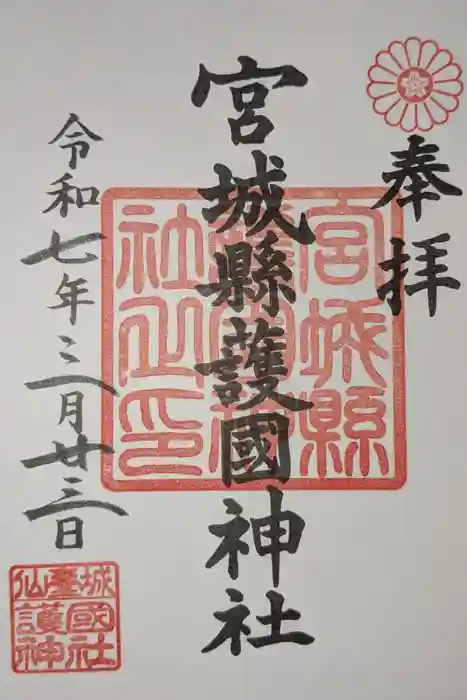 奉拝
宮城縣護國神社
宮城縣
護國神
社之印
令和七年三月廿三日
城國社
仙臺護神